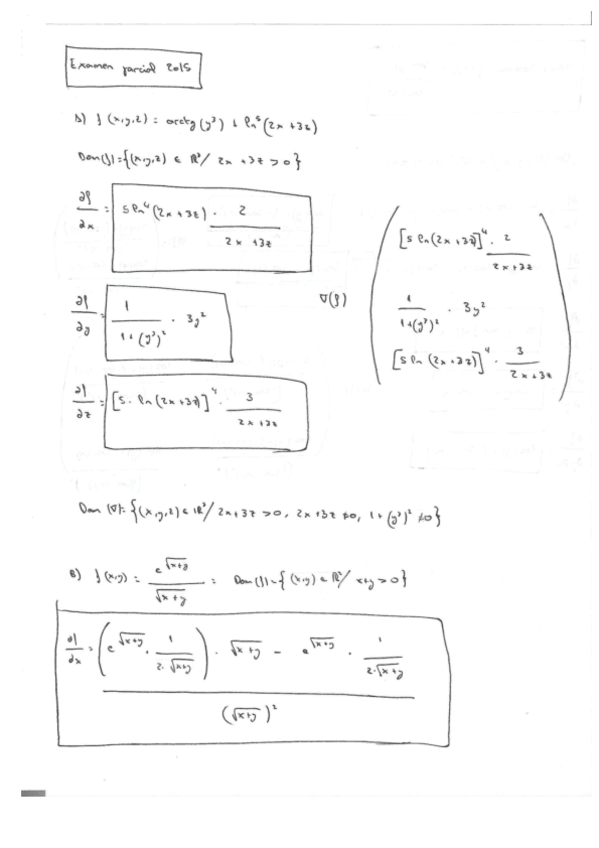 Examen parcial 2015
A) f(x,y,z) = arctg(y³) + ln⁵(2x+3z)
Dom(f)={(x,y,z) ∈ ℝ³/ 2x+3z>0}
∂f/∂x = 5 ln⁴(2x+3z) · 2/(2x+3z)
∂f/∂y = 1/(1+(y³)²) · 3y²
∂f/∂z = [5·ln(2x+3z)]⁴ · 3/(2x+3z)
∇(f)
[5 ln(2x+3z)]⁴ · 2/(2x+3z)
1/(1+(y³)²) · 3y²
[5 ln(2x+3z)]⁴ · 3/(2x+3z)
Dom(∇)={(x,y,z) ∈ ℝ³/ 2x+3z>0, 2x+3z≠0, 1+(y³)²≠0}
B) f(x,y) = e^√(x+y)/√(x+y) = Dom(f)={(x,y) ∈ ℝ²/ x+y>0}
∂f/∂x = ((e^√(x+y) · 1/(2·√(x+y))) · √(x+y) − e^√(x+y) · 1/(2·√(x+y)))/(√(x+y))²